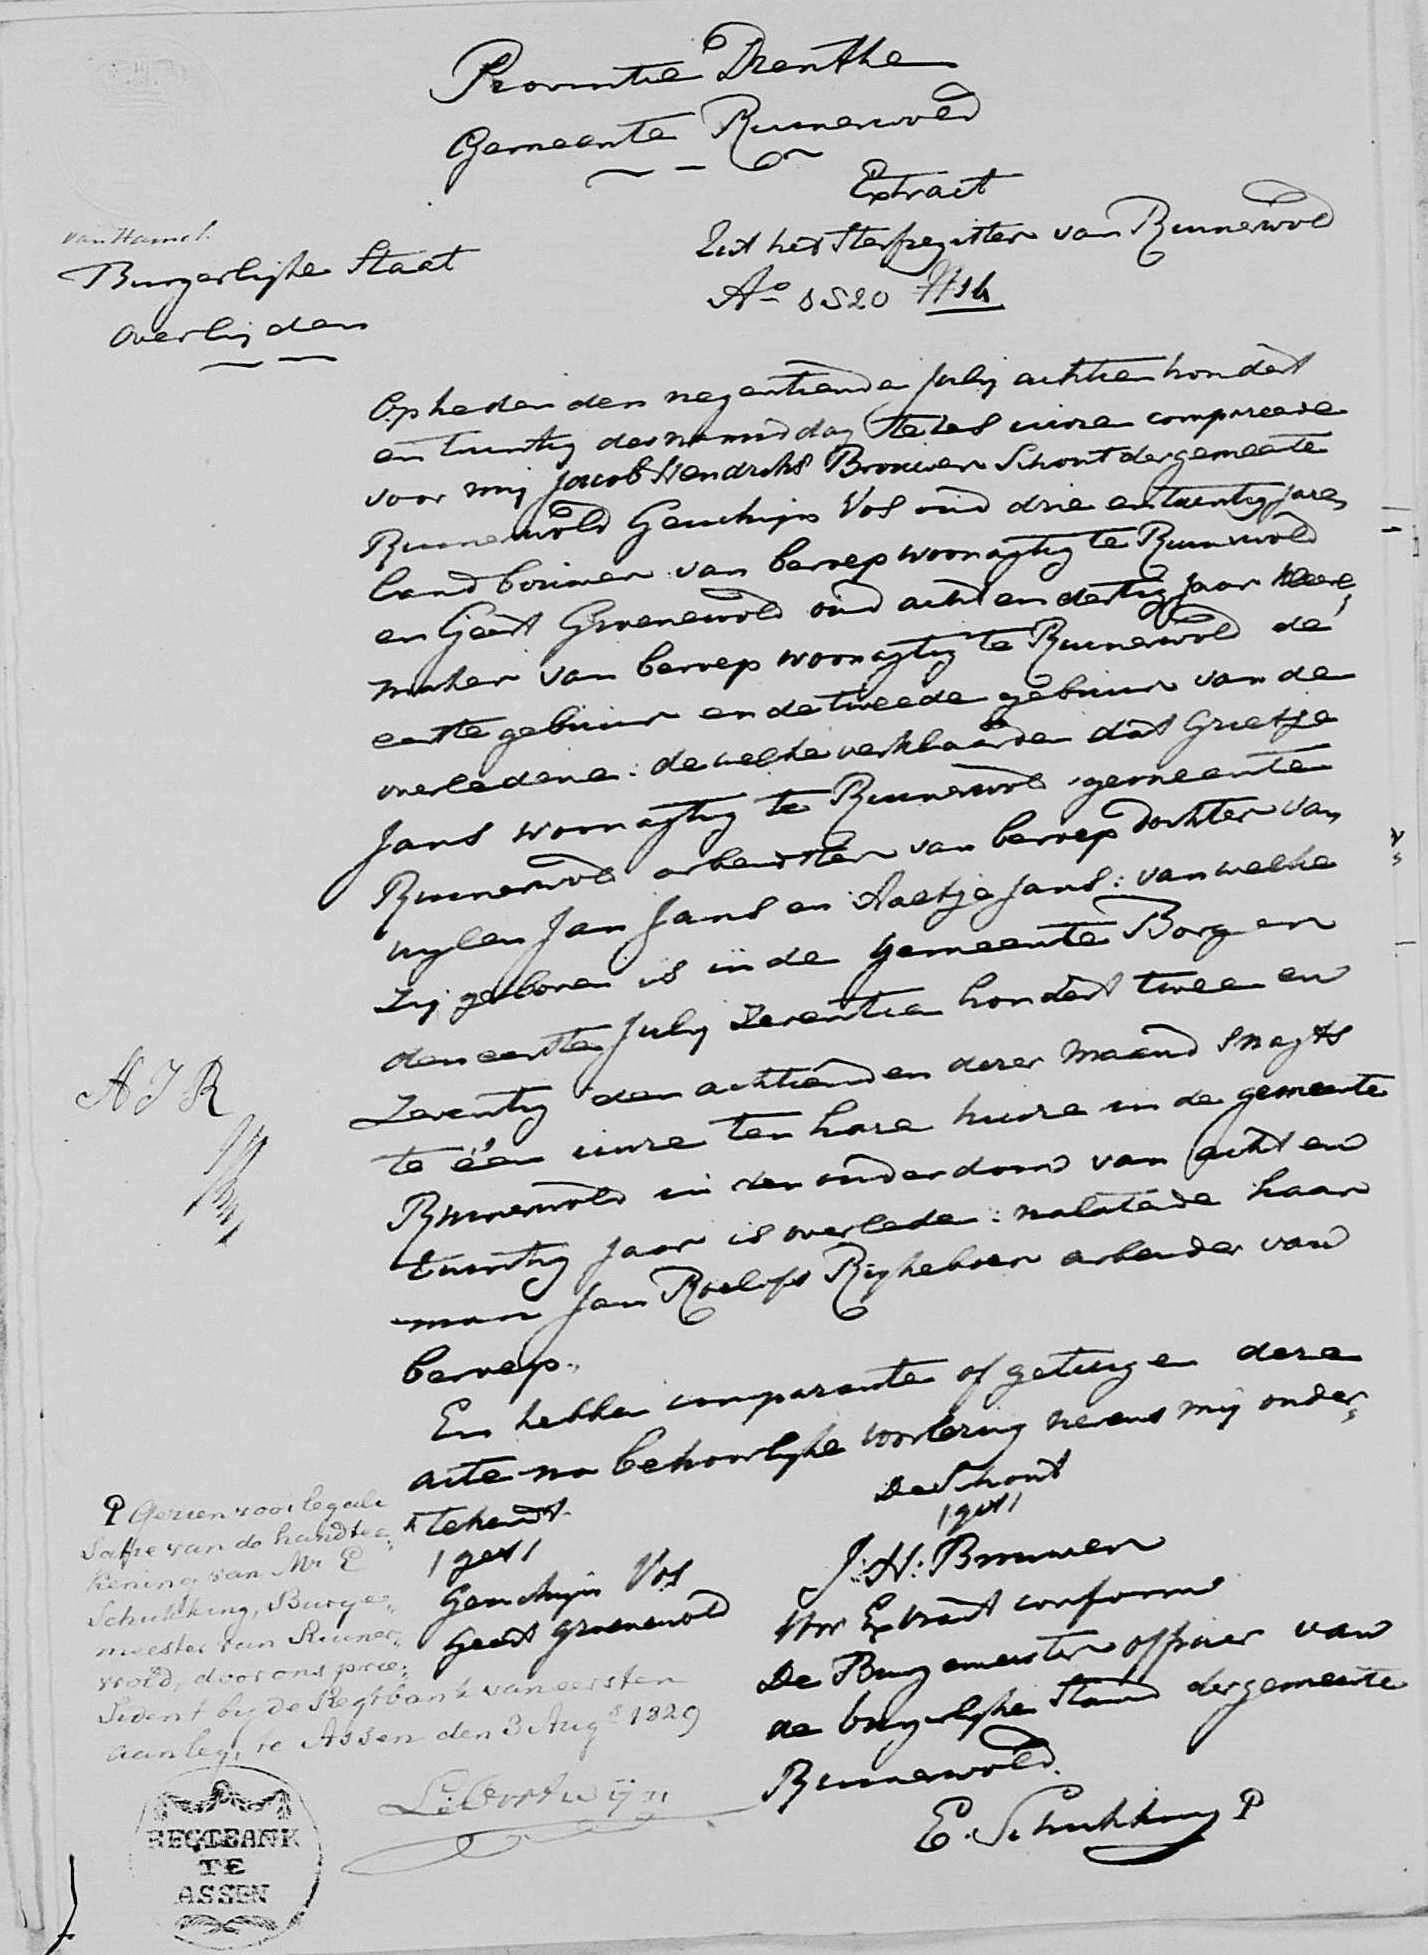 Provintie Drenthe
Gemeente Ruinerwold
Extract
Uit het Sterfregister van Ruinerwold
Ao 1820 N 14
van Hamel
Burgerlijke Staat
Overlijden
Op heden den negentiende julij achtien hondert
en twintig des namiddag te ses uure compareerde
voor mij Jacob Hendriks Brouwer Schout der gemeente
Ruinerwold Geuchijn Vos oud drie en twintig jare
landbouwer van beroep woonagtig te Ruinerwold
en Geert Groenewold oud acht en dertig jaar kleer„
maker van beroep woonagtig te Ruinerwold de
eerste gebuur en de tweede gebuur van de
overledene: dewelke verklaarden dat Grietje
Jans woonagtig te Ruinerwold gemeente
Ruinerwold arbeidster van beroep dochter van
wylen Jan Jans en Aaltje Jans: van welke
zij geboren is in de Gemeente Borger
den eerste July zeventien hondert twee en
zeventig den achtienden dezer maand snagts
te één uure ten hare huise in de gemeente
Ruinerwold in den ouderdom van acht en
twintig jaar is overleden: nalatende haar
man Jan Roelofs Righeboer arbeider van
beroep.
En hebben comparante of getuige deze
acte na behoorlijke voorlezing nevens mij onder„
tekendt
De Schout
/get/
/get/
J: H: Brouwer
Geuchijn Vos
Geert Groenewold
Voor Extract conform
De Burgemeester officier van
de burgerlijke Stand der gemeente
Ruinerwold.
E. Schukking P
A J R
P Gezien voor legali
satie van de handtee„
kening van Mr E
Schukking, Burge„
meester van Ruiner„
wold, door ons pree„
sident bij de Regtbank van eersten
aanleg, te Assen den 3 Augs 1829
L: Oostwijn
REGTBANK
TE
ASSEN